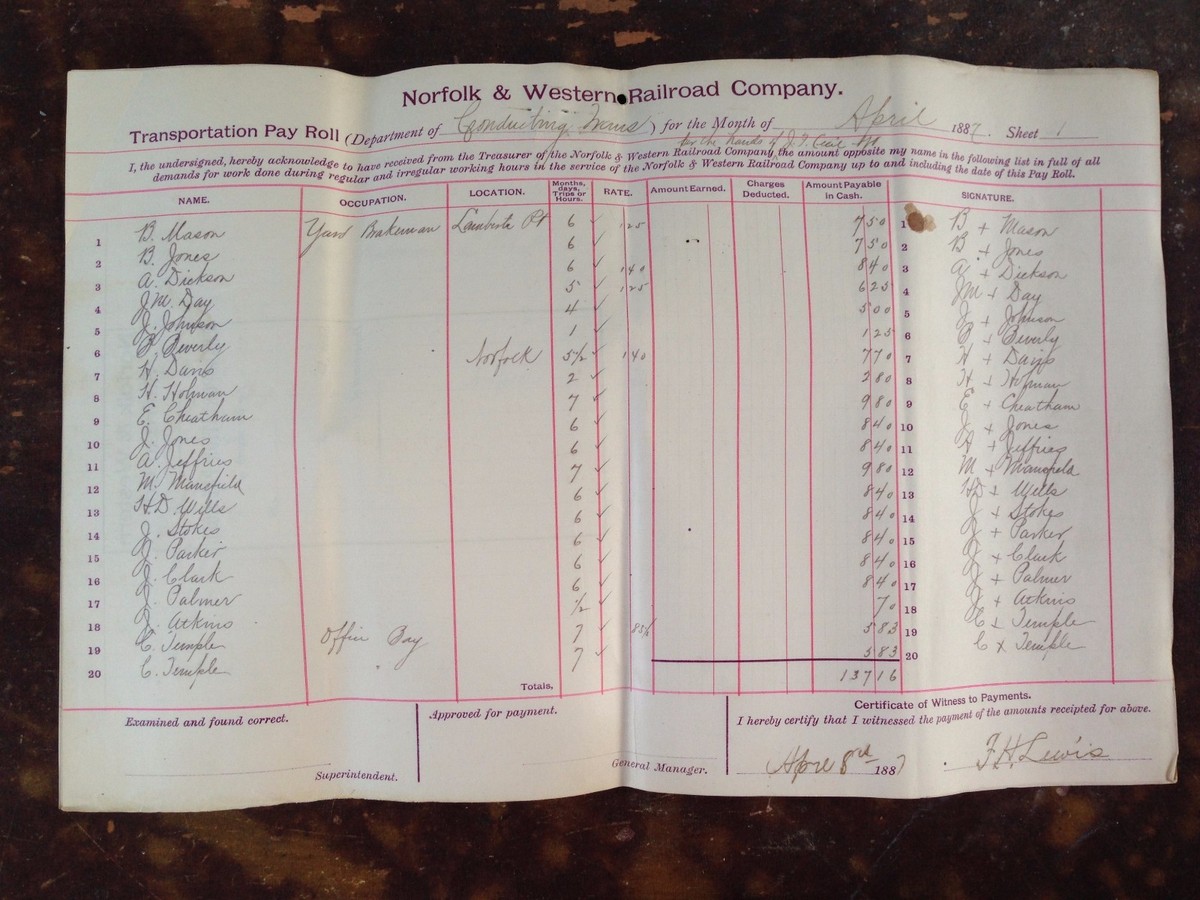 Norfolk & Western Railroad Company.
Transportation Pay Roll (Department of Conducting) for the Month of April 1887. Sheet 1
for the hands of J. T.
I, the undersigned, hereby acknowledge to have received from the Treasurer of the Norfolk & Western Railroad Company the amount opposite my name in the following list in full of all
demands for work done during regular and irregular working hours in the service of the Norfolk & Western Railroad Company up to and including the date of this Pay Roll.
NAME. OCCUPATION. LOCATION. Months, days, Trips or Hours. RATE. Amount Earned. Charges Deducted. Amount Payable in Cash. SIGNATURE.
1 B. Mason Yard Brakeman Lamberts Pt 6 ✓ 125 7 50 1 B + Mason
2 B. Jones 6 ✓ 7 50 2 B + Jones
3 A. Dickson 6 ✓ 140 8 40 3 A + Dickson
4 J.M. Day 5 ✓ 125 6 25 4 JM + Day
5 J. Johnson 4 ✓ 5 00 5 J + Johnson
6 B. Beverly 1 ✓ 1 25 6 B + Beverly
7 H. Davis Norfolk 5½ ✓ 140 7 70 7 H + Davis
8 H. Holman 2 ✓ 2 80 8 H + Holman
9 E. Cheatham 7 ✓ 9 80 9 E + Cheatham
10 J. Jones 6 ✓ 8 40 10 J + Jones
11 A. Jeffries 6 ✓ 8 40 11 A + Jeffries
12 M. Mansfield 7 ✓ 9 80 12 M + Mansfield
13 H.D. Wills 6 ✓ 8 40 13 HD + Wills
14 J. Stokes 6 ✓ 8 40 14 J + Stokes
15 J. Parker 6 ✓ 8 40 15 J + Parker
16 J. Clark 6 ✓ 8 40 16 J + Clark
17 J. Palmer 6 ✓ 8 40 17 J + Palmer
18 J. Atkins ½ ✓ 70 18 J + Atkins
19 C. Temple Office Boy 7 ✓ 83⅓ 5 83 19 C + Temple
20 C. Temple " 7 ✓ 5 83 20 C x Temple
Totals, 137 16
Examined and found correct.
Superintendent.
Approved for payment.
General Manager.
Certificate of Witness to Payments.
I hereby certify that I witnessed the payment of the amounts receipted for above.
Apre 8rd 1887 F.H. Lewis